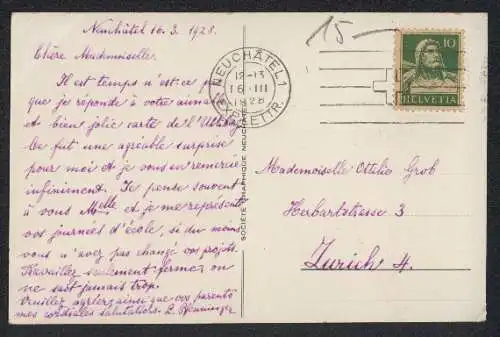 Neuchâtel 16.3.1928.
Chère Mademoiselle.
Il est temps n'est-ce pas
que je réponde à votre aimable
et bien jolie carte de l'
Ce fut une agréable surprise
pour moi et je vous en remercie
infiniment. Je pense souvent
à vous Melle et je me représente
vos journées d'école, si du moins
vous n'avez pas changé vos projets.
Travaillez seulement ferme, on
ne sait jamais trop.
Veuillez agréer ainsi que vos parents
mes cordiales salutations.
15
NEUCHÂTEL 1
12-13
16 III
1928
LETTR.
10
HELVETIA
SOCIÉTÉ GRAPHIQUE NEUCHÂTEL
Mademoiselle Ottilie Grob
Herbartstrasse 3
Zurich 4.